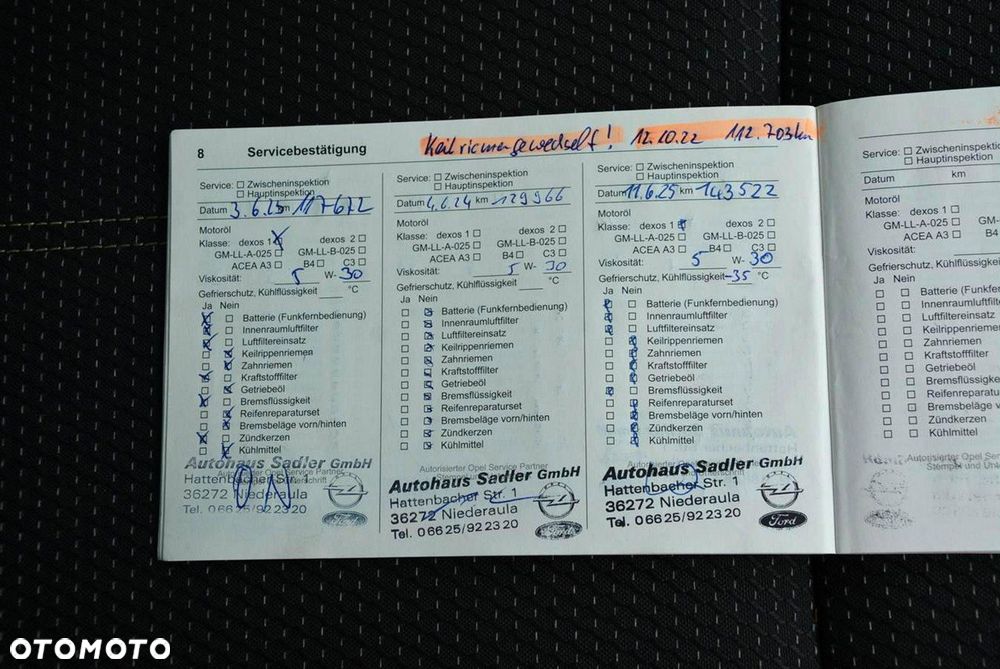 8 Servicebestätigung
Keilriemen gewechselt! 12.10.22 112.703km
Service: Zwischeninspektion
Hauptinspektion
Datum 3.6.23 km 117672
Motoröl
Klasse: dexos 1 dexos 2
GM-LL-A-025 GM-LL-B-025
ACEA A3 B4 C3
Viskosität: 5 W- 30
Gefrierschutz, Kühlflüssigkeit °C
Ja Nein
Batterie (Funkfernbedienung)
Innenraumluftfilter
Luftfiltereinsatz
Keilrippenriemen
Zahnriemen
Kraftstofffilter
Getriebeöl
Bremsflüssigkeit
Reifenreparaturset
Bremsbeläge vorn/hinten
Zündkerzen
Kühlmittel
Autohaus Sadler GmbH
Hattenbacher Str. 1
36272 Niederaula
Tel. 06625/922320
Service: Zwischeninspektion
Hauptinspektion
Datum 4.6.24 km 129966
Motoröl
Klasse: dexos 1 dexos 2
GM-LL-A-025 GM-LL-B-025
ACEA A3 B4 C3
Viskosität: 5 W- 30
Gefrierschutz, Kühlflüssigkeit °C
Ja Nein
Batterie (Funkfernbedienung)
Innenraumluftfilter
Luftfiltereinsatz
Keilrippenriemen
Zahnriemen
Kraftstofffilter
Getriebeöl
Bremsflüssigkeit
Reifenreparaturset
Bremsbeläge vorn/hinten
Zündkerzen
Kühlmittel
Autorisierter Opel Service Partner
Autohaus Sadler GmbH
Hattenbacher Str. 1
36272 Niederaula
Tel. 06625/922320
Service: Zwischeninspektion
Hauptinspektion
Datum 11.6.25 km 143522
Motoröl
Klasse: dexos 1 dexos 2
GM-LL-A-025 GM-LL-B-025
ACEA A3 B4 C3
Viskosität: 5 W- 30
Gefrierschutz, Kühlflüssigkeit -35 °C
Ja Nein
Batterie (Funkfernbedienung)
Innenraumluftfilter
Luftfiltereinsatz
Keilrippenriemen
Zahnriemen
Kraftstofffilter
Getriebeöl
Bremsflüssigkeit
Reifenreparaturset
Bremsbeläge vorn/hinten
Zündkerzen
Kühlmittel
Autorisierter Opel Service Partner
Autohaus Sadler GmbH
Hattenbacher Str. 1
36272 Niederaula
Tel. 06625/922320
Ford
Service: Zwischeninspektion
Hauptinspektion
Datum km
Motoröl
Klasse: dexos 1
GM-LL-A-025
ACEA A3
Viskosität:
Gefrierschutz, Kühlflüssig
Ja Nein
Batterie (Funkfer
Innenraumluftfilte
Luftfiltereinsatz
Keilrippenriemen
Zahnriemen
Kraftstofffilter
Getriebeöl
Bremsflüssigkeit
Reifenreparaturse
Bremsbeläge vorn/
Zündkerzen
Kühlmittel
Autorisierter Opel Ser
Stempel und Unt
OTOMOTO